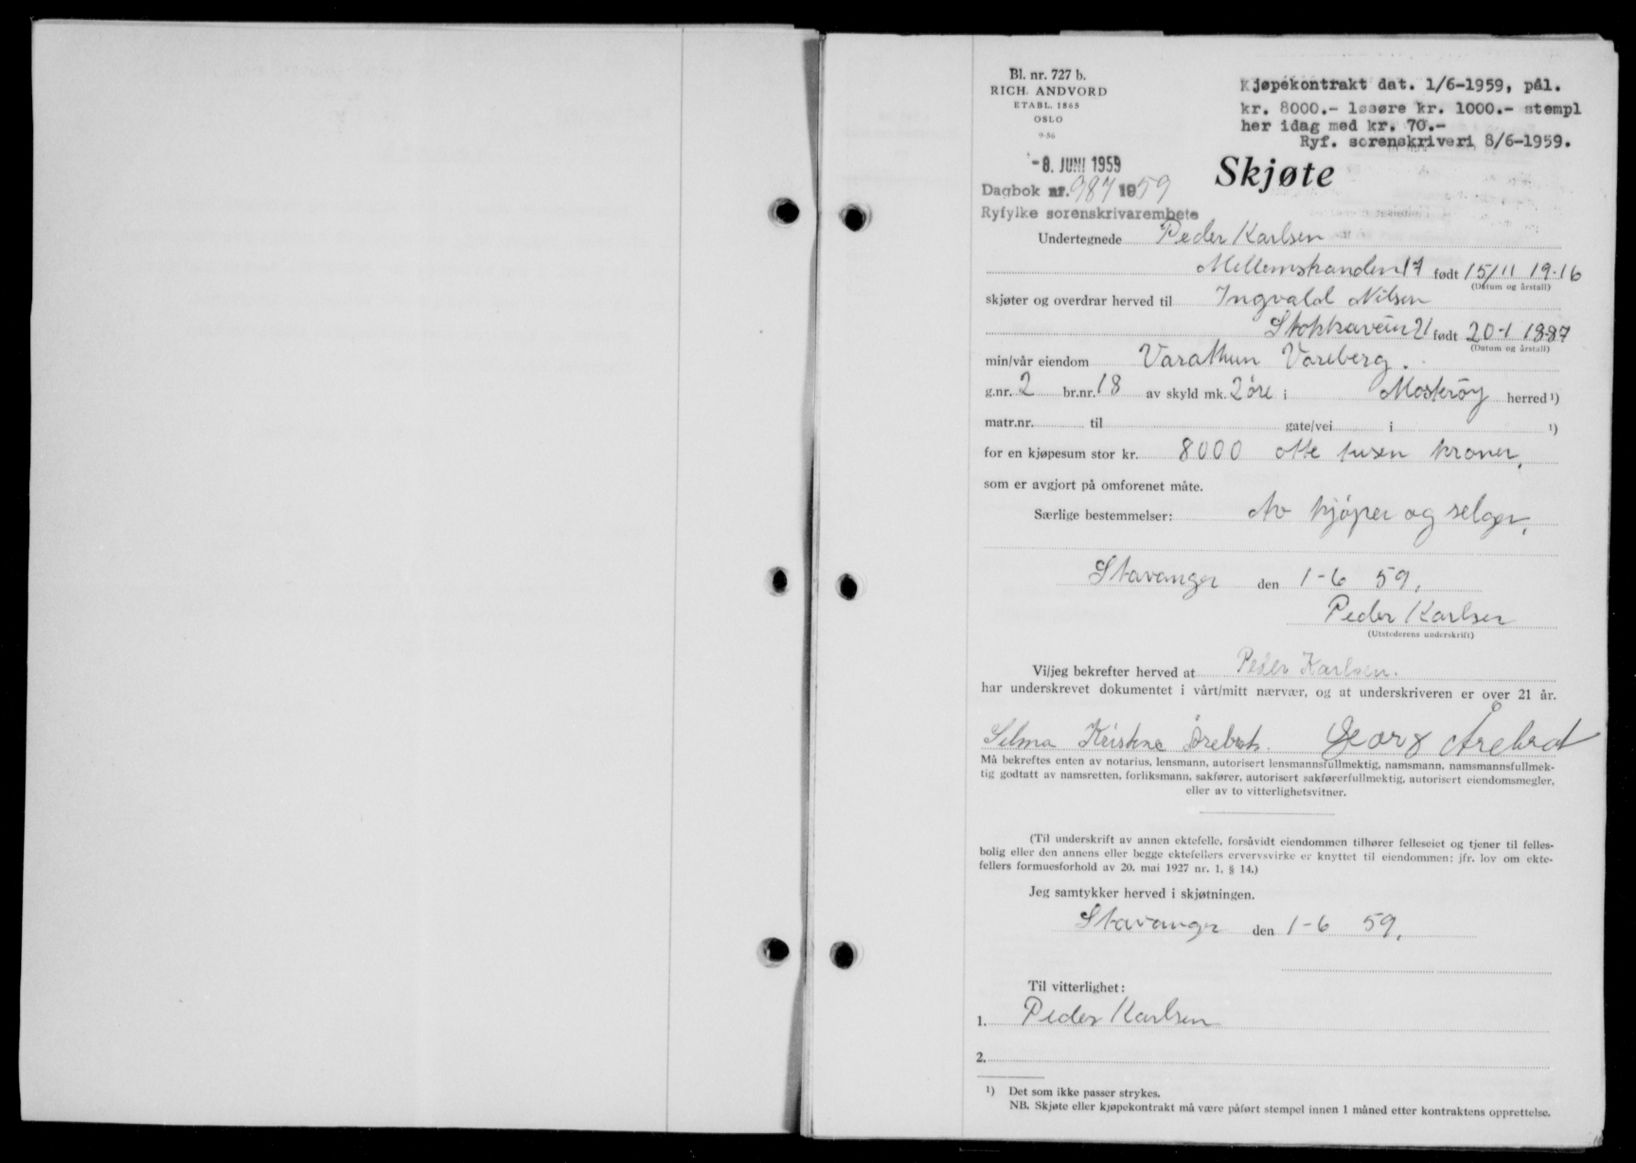 Bl. nr. 727 b.
RICH. ANDVORD
ETABL. 1865
OSLO
9-56
Kjøpekontrakt dat. 1/6-1959, pål.
kr. 8000.- løsøre kr. 1000.- stempl
her idag med kr. 70.-
Ryf. sorenskriveri 8/6-1959.
-8. JUNI 1959
Skjøte
Dagbok nr. 987 1959
Ryfylke sorenskrivarembete
Undertegnede Peder Karlsen
Mellemstranden 17 født 15/11 19.16
(Datum og årstall)
skjøter og overdrar herved til Ingvald Nilsen
Stokkaveien 21 født 20-1 1887
(Datum og årstall)
min/vår eiendom Varathun Vareberg.
g.nr. 2 br.nr. 18 av skyld mk. 2 øre i Mosterøy herred ¹)
matr.nr. til gate/vei i ¹)
for en kjøpesum stor kr. 8000 otte tusen kroner,
som er avgjort på omforenet måte.
Særlige bestemmelser: Av kjøper og selger,
Stavanger den 1-6 59,
Peder Karlsen
(Utstederens underskrift)
Vi/jeg bekrefter herved at Peder Karlsen.
har underskrevet dokumentet i vårt/mitt nærvær, og at underskriveren er over 21 år.
Selma Kristine Årebrot. Georg Årebrot
Må bekreftes enten av notarius, lensmann, autorisert lensmannsfullmektig, namsmann, namsmannsfullmek-
tig godtatt av namsretten, forliksmann, sakfører, autorisert sakførerfullmektig, autorisert eiendomsmegler,
eller av to vitterlighetsvitner.
(Til underskrift av annen ektefelle, forsåvidt eiendommen tilhører felleseiet og tjener til felles-
bolig eller den annens eller begge ektefellers ervervsvirke er knyttet til eiendommen; jfr. lov om ekte-
fellers formuesforhold av 20. mai 1927 nr. 1, § 14.)
Jeg samtykker herved i skjøtningen.
Stavanger den 1-6 59,
Til vitterlighet:
1. Peder Karlsen
2.
¹) Det som ikke passer strykes.
NB. Skjøte eller kjøpekontrakt må være påført stempel innen 1 måned etter kontraktens opprettelse.